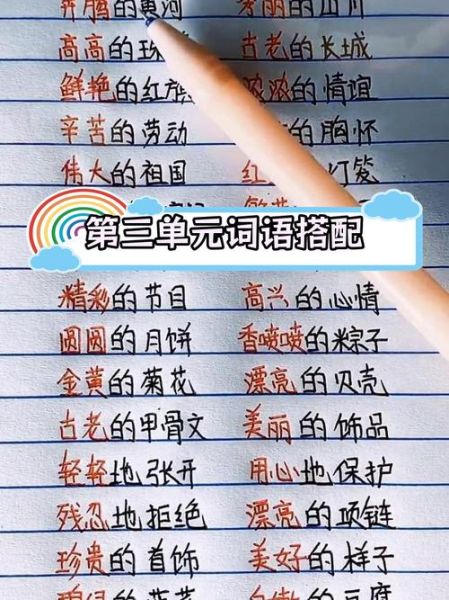 奔腾的黄河 秀丽的山川
高高的珠 古老的长城
鲜艳的红旗 浓浓的情谊
辛苦的劳动 的胸怀
伟大的祖国 红 灯笼
第三单元词语搭配
精彩的节目 高兴的心情
圆圆的月饼 香喷喷的粽子
金黄的菊花 漂亮的贝壳
古老的甲骨文 美丽的饰品
轻轻地张开 用心地保护
残忍地拒绝 漂亮的项链
珍贵的首饰 美好的样子